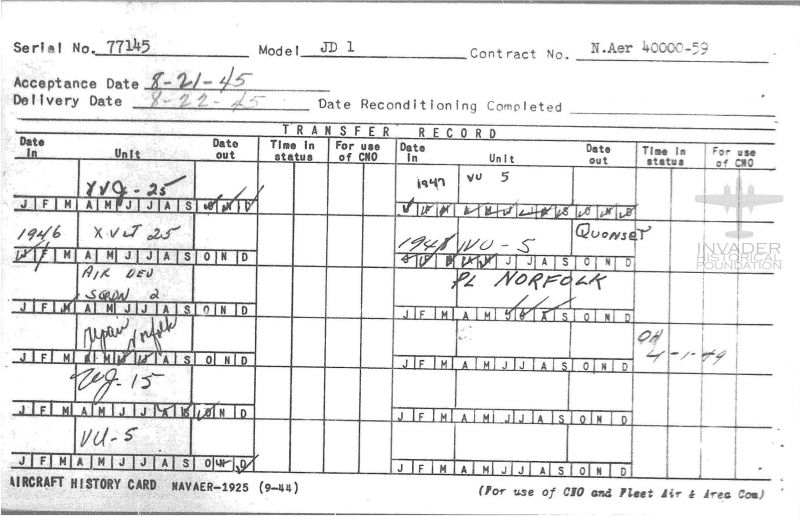 Serial No. 77145 Model JD 1 Contract No. N.Aer 40000-59
Acceptance Date 8-21-45
Delivery Date 8-22-45 Date Reconditioning Completed
TRANSFER RECORD
Date in Unit Date out Time in status For use of CNO Date in Unit Date out Time in status For use of CNO
XVJ-25
J F M A M J J A S O N D
1946 XVJ 25
J F M A M J J A S O N D
AIR DEV
SQDN 2
J F M A M J J A S O N D
repair Norfolk
J F M A M J J A S O N D
VJ-15
J F M A M J J A S O N D
VU-5
J F M A M J J A S O N D
1947 VU 5
J F M A M J J A S O N D
1948 VU-5 QUONSET
J F M A M J J A S O N D
PL NORFOLK
J F M A M J J A S O N D
4-1-49
J F M A M J J A S O N D
J F M A M J J A S O N D
J F M A M J J A S O N D
INVADER
HISTORICAL
FOUNDATION
AIRCRAFT HISTORY CARD NAVAER-1925 (9-44) (For use of CNO and Fleet Air & Area Com)